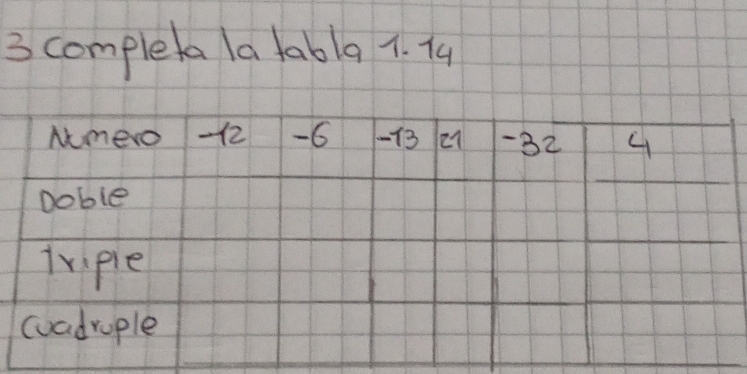 3 completa la tabla 1.14
Numero -12 -6 -13 21 -32 4
Doble
Triple
Cuadruple